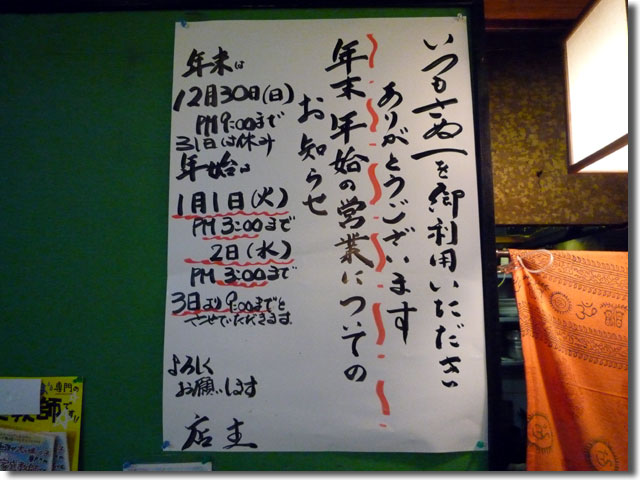 いつもさぬ一を御利用いただき
ありがとうございます
年末年始の営業についての
お知らせ
年末は
12月30日(日)
PM9:00まで
31日は休み
年始は
1月1日(火)
PM3:00まで
2日(水)
PM3:00まで
3日より9:00までと
させていただきます。
よろしく
お願いします
店主
専門の
師です!!